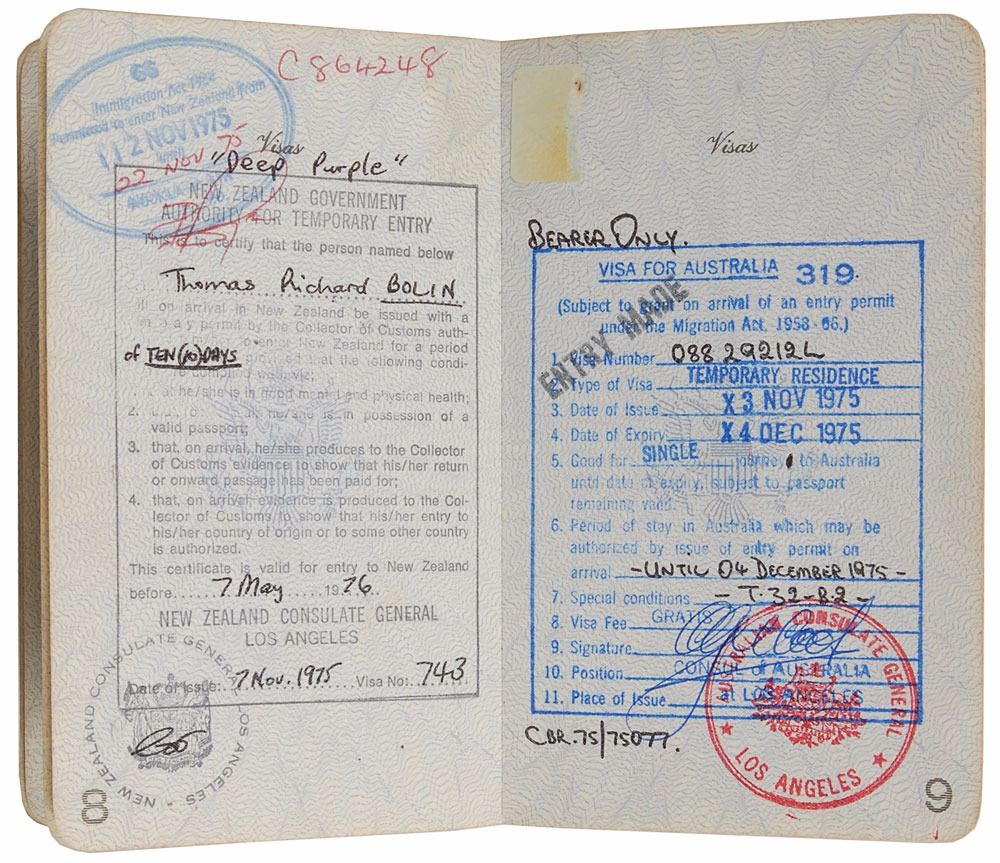 C864248
66
Immigration Act 1964
Permitted to enter New Zealand from
12 NOV 1975
until
22 NOV 75
Visas
"Deep Purple"
NEW ZEALAND GOVERNMENT
AUTHORITY FOR TEMPORARY ENTRY
This is to certify that the person named below
Thomas Richard BOLIN
will on arrival in New Zealand be issued with a
permit by the Collector of Customs auth-
to enter New Zealand for a period
of TEN (10) DAYS
that the following condi-
he/she is in good mental and physical health;
2. he/she is in possession of a
valid passport;
3. that, on arrival, he/she produces to the Collector
of Customs evidence to show that his/her return
or onward passage has been paid for;
4. that, on arrival, evidence is produced to the Col-
lector of Customs to show that his/her entry to
his/her country of origin or to some other country
is authorized.
This certificate is valid for entry to New Zealand
before 7 May 1976.
NEW ZEALAND CONSULATE GENERAL
LOS ANGELES
Date of issue: 7 Nov. 1975 Visa No: 743
NEW ZEALAND CONSULATE GENERAL LOS ANGELES
8
Visas
BEARER ONLY.
VISA FOR AUSTRALIA 319.
(Subject to grant on arrival of an entry permit
under the Migration Act, 1958-66.)
ENTRY MADE
1. Visa Number 088 29212L
2. Type of Visa TEMPORARY RESIDENCE
3. Date of Issue X 3 NOV 1975
4. Date of Expiry X 4 DEC 1975
5. Good for SINGLE journey to Australia
until date of expiry, subject to passport
remaining valid.
6. Period of stay in Australia which may be
authorized by issue of entry permit on
arrival -UNTIL 04 DECEMBER 1975-
7. Special conditions - T.32-B.2 -
8. Visa Fee GRATIS
9. Signature
10. Position CONSUL of AUSTRALIA
11. Place of Issue at LOS ANGELES
AUSTRALIAN CONSULATE GENERAL
★ LOS ANGELES ★
CBR.75/75077.
9